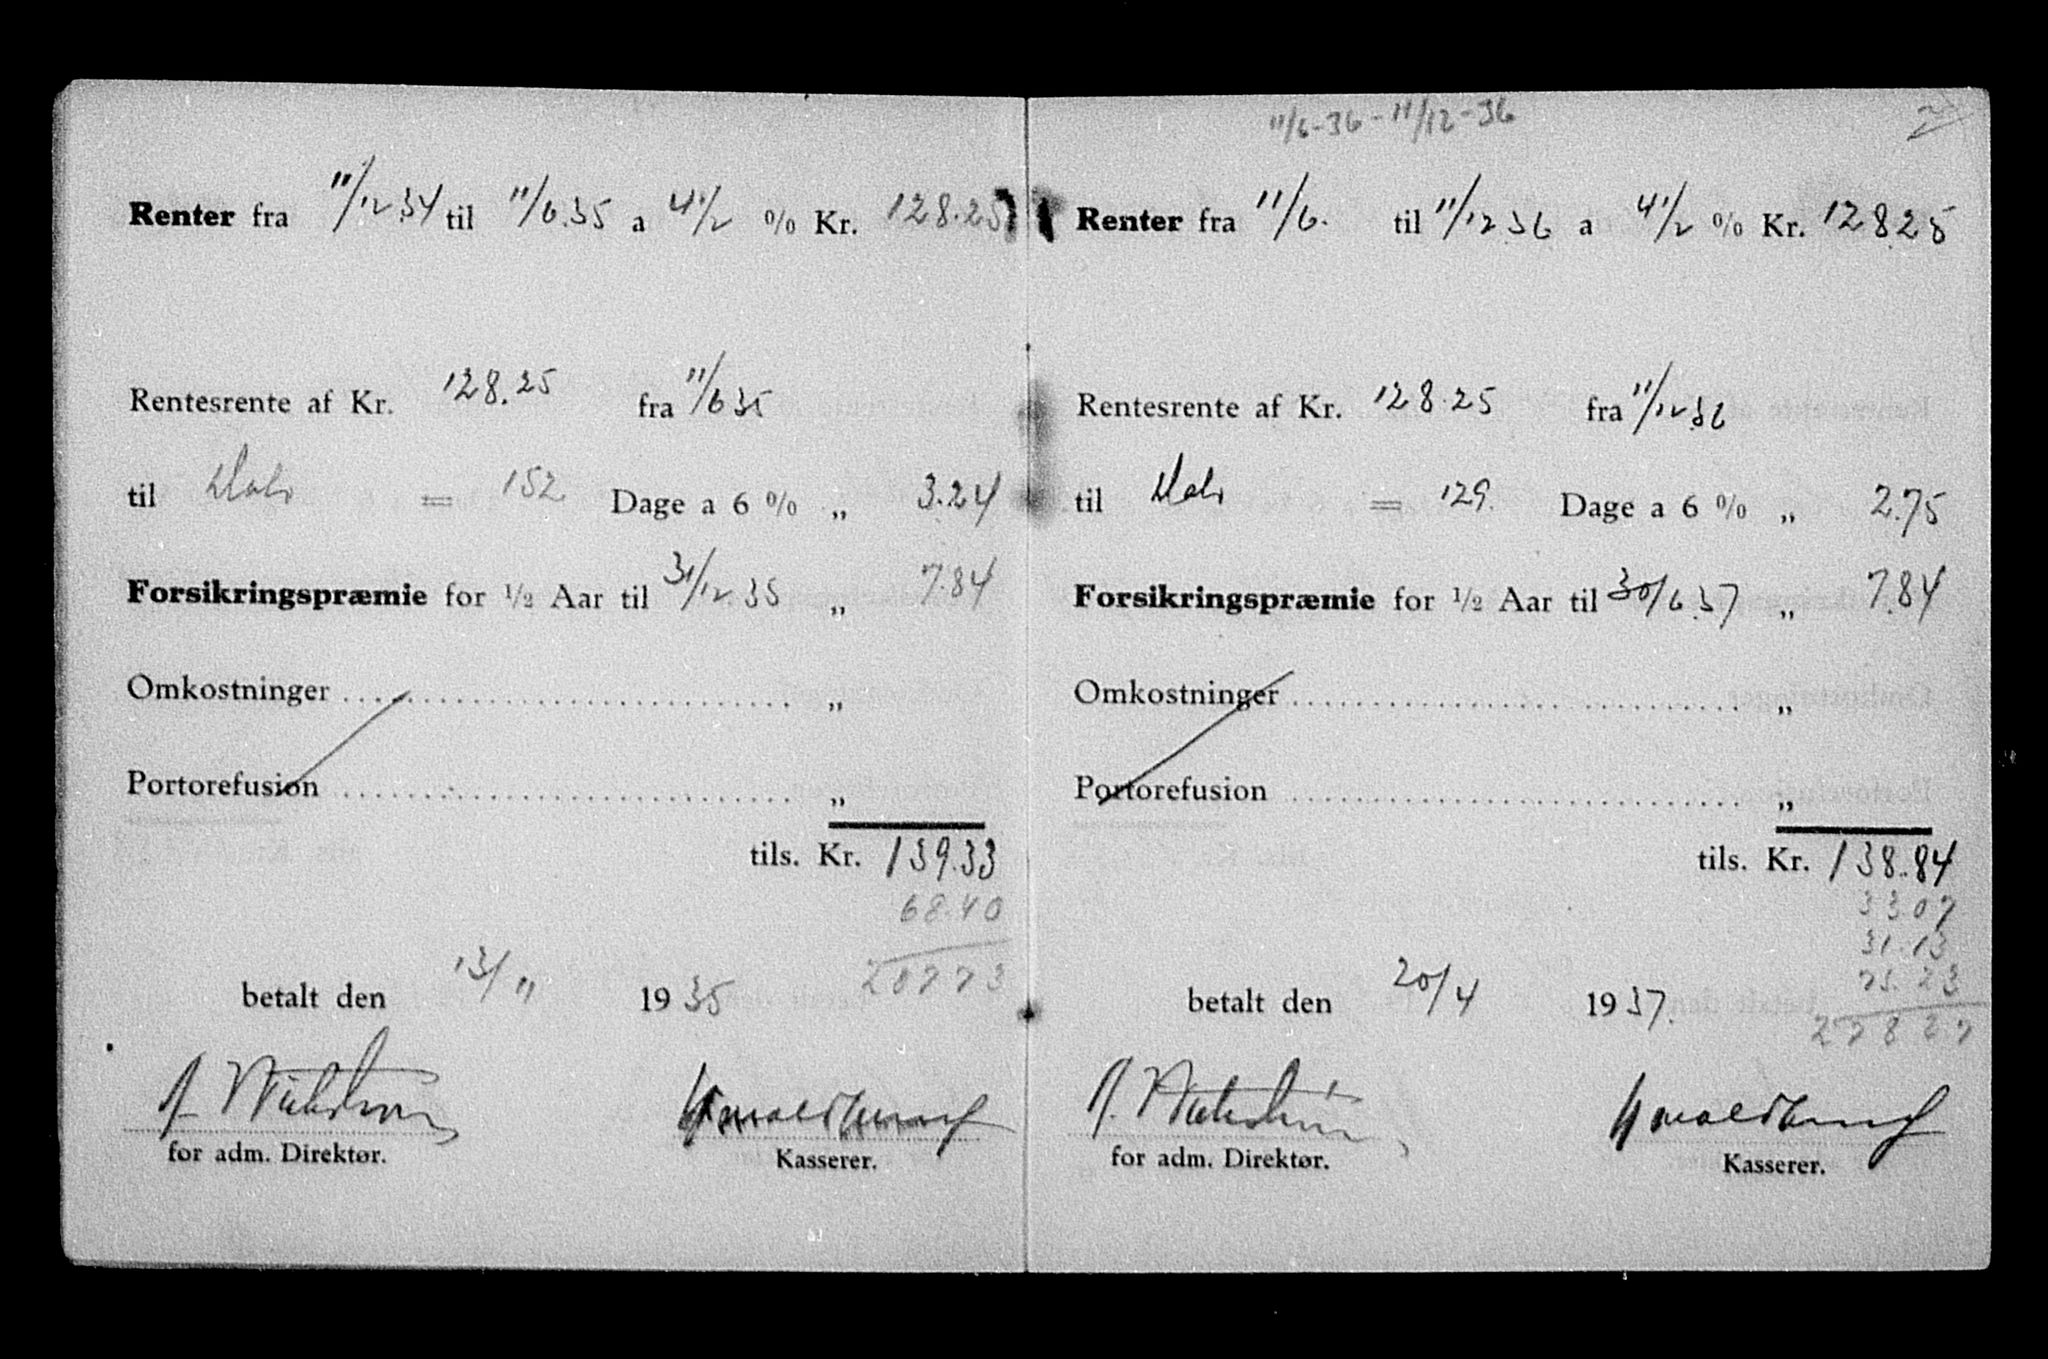 Renter fra 11/12 34 til 11/6.35 a 4 1/2 % Kr. 128.25
Rentesrente af Kr. 128.25 fra 11/6 35
til Dato = 152 Dage a 6 % „ 3.24
Forsikringspræmie for 1/2 Aar til 31/12 35 „ 7.84
Omkostninger „
Portorefusion „
tils. Kr. 139.33
68.40
207 73
betalt den 13/11 1935
for adm. Direktør. Kasserer.
11/6-36 - 11/12-36
Renter fra 11/6. til 11/12 36 a 4 1/2 % Kr. 128 25
Rentesrente af Kr. 128.25 fra 11/12 36
til Dato = 129. Dage a 6 % „ 2.75
Forsikringspræmie for 1/2 Aar til 30/6 37 „ 7.84
Omkostninger „
Portorefusion „
tils. Kr. 138.84
33 07
31.13
75.23
278 27
betalt den 20/4 1937.
for adm. Direktør. Kasserer.